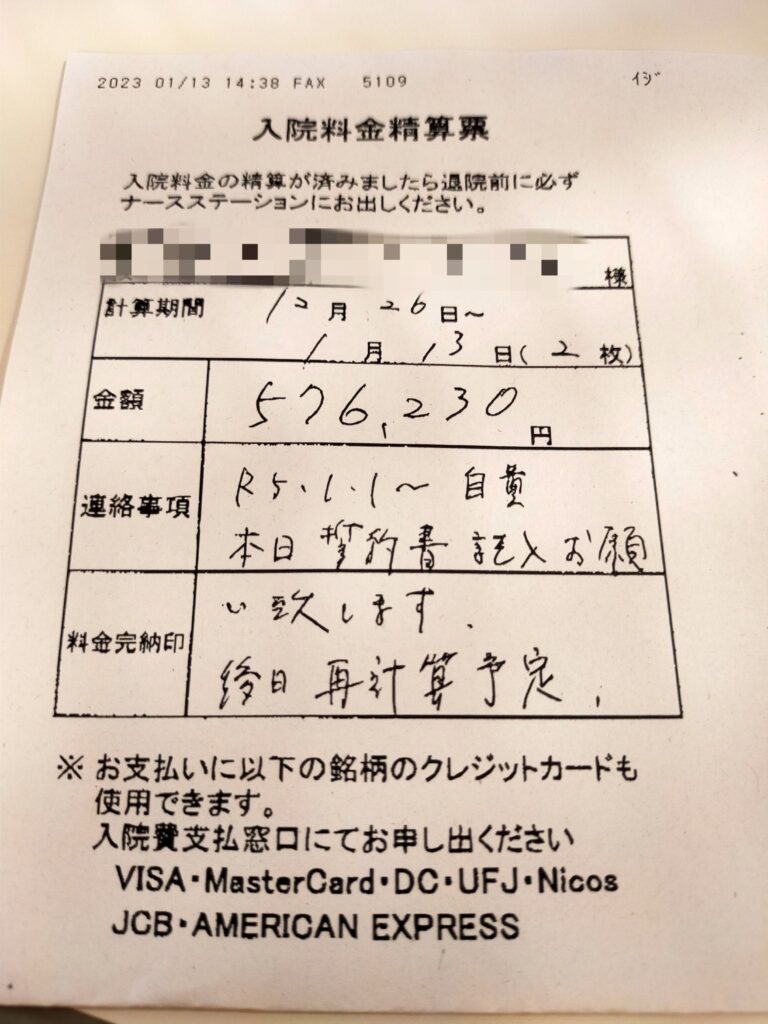 2023 01/13 14:38 FAX 5109 ｲｼﾞ
入院料金精算票
入院料金の精算が済みましたら退院前に必ず
ナースステーションにお出しください。
様
計算期間 12月 26日~
1月 13日(2枚)
金額 576,230円
連絡事項 R5.1.1~ 自費
本日 誓約書 記入 お願
い致します.
料金完納印
後日 再計算予定.
※ お支払いに以下の銘柄のクレジットカードも
使用できます。
入院費支払窓口にてお申し出ください
VISA・MasterCard・DC・UFJ・Nicos
JCB・AMERICAN EXPRESS